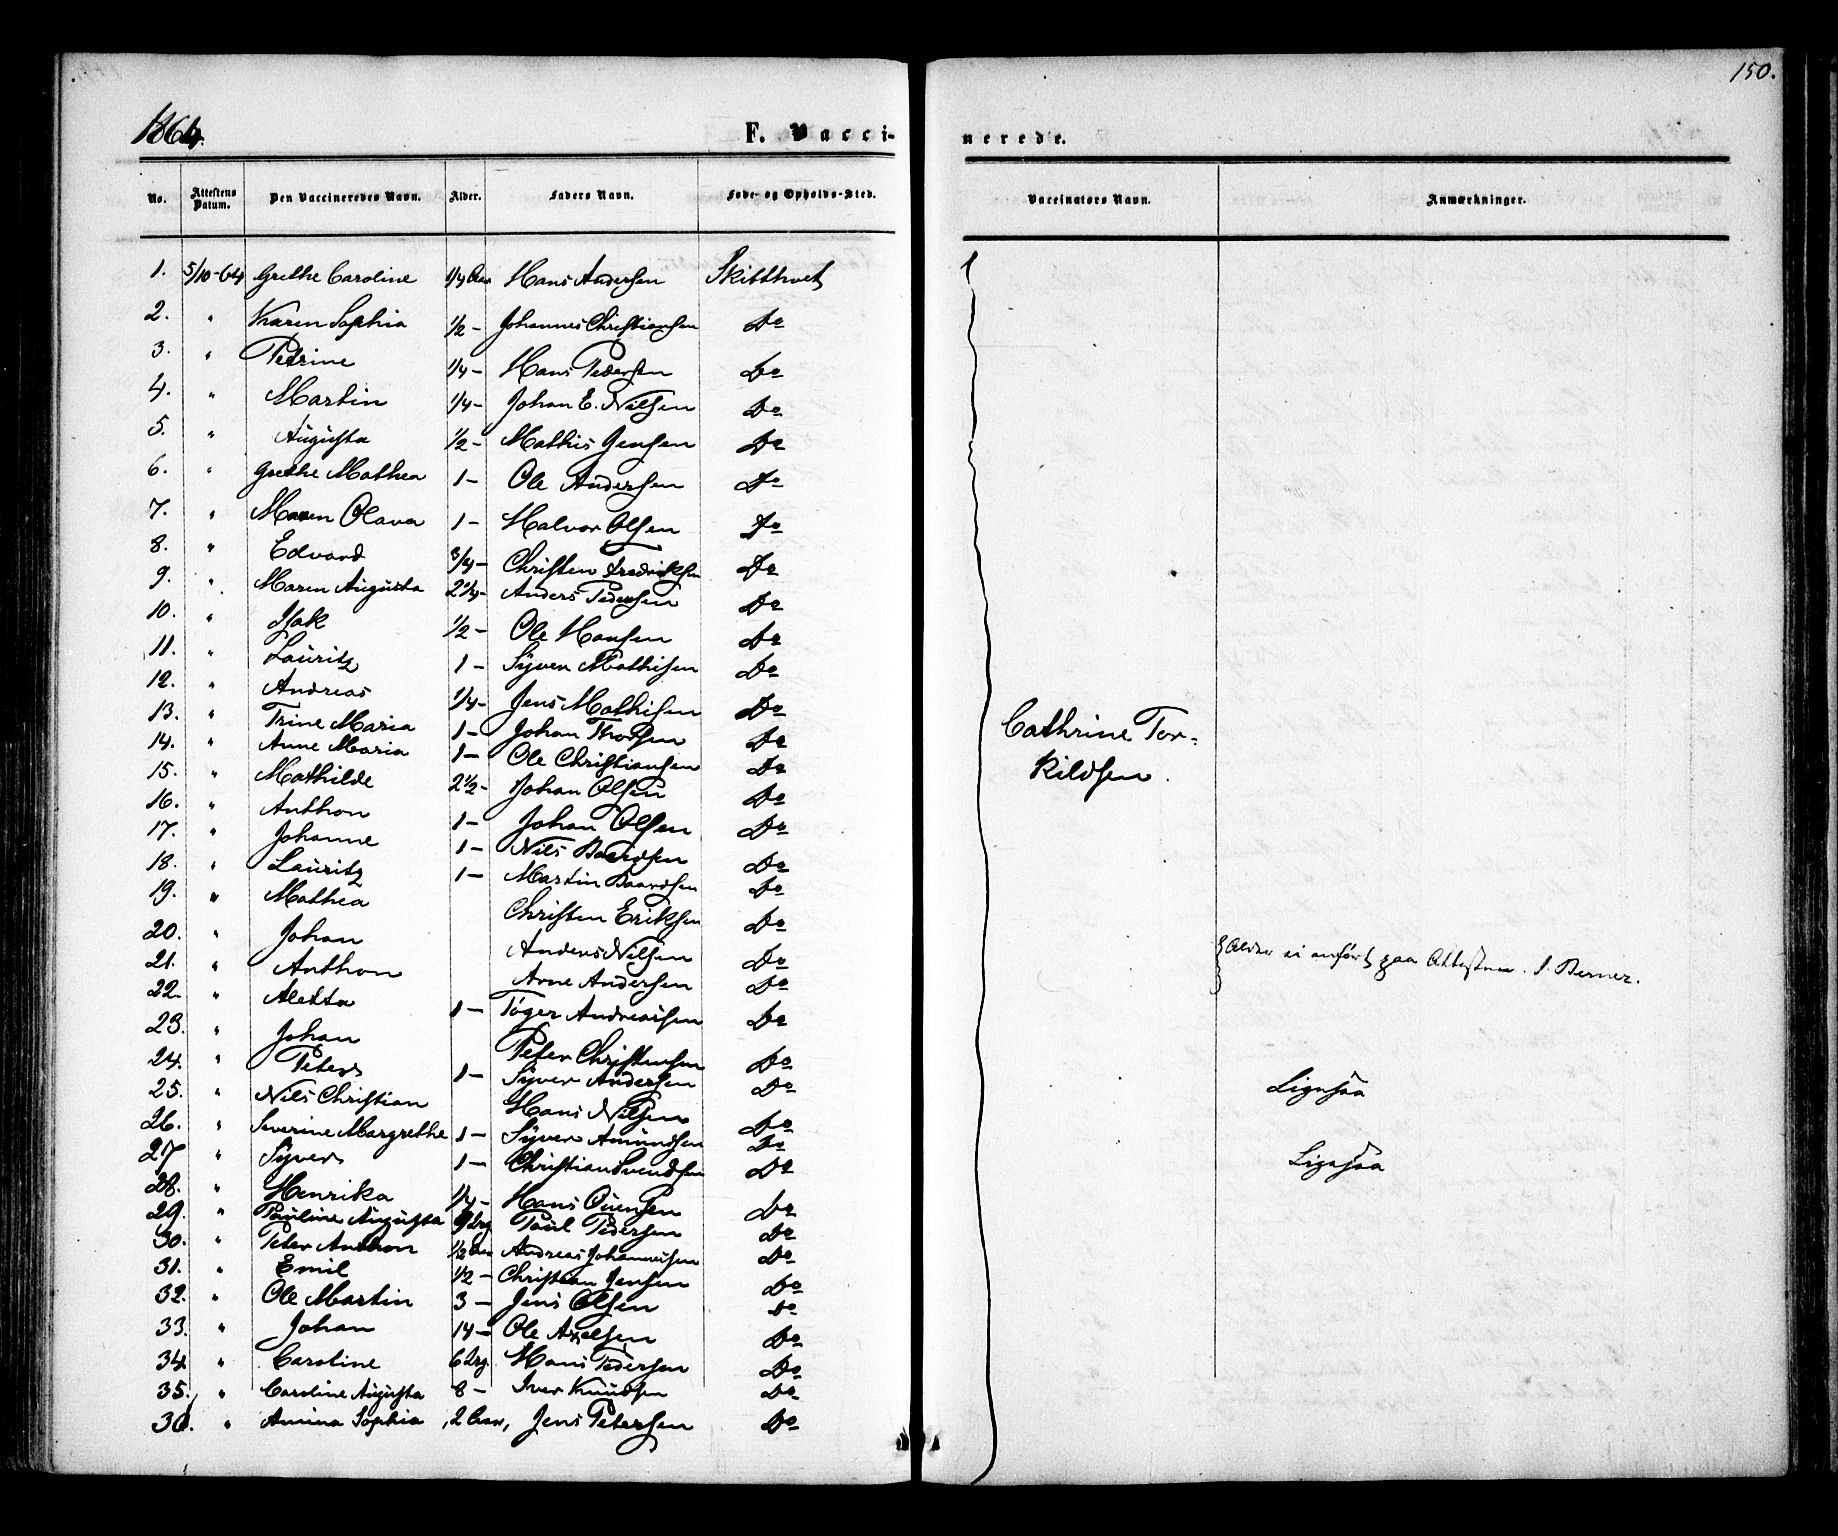 150.
1864.
F. Vacci-
nerede.
No. Attestens Datum. Den Vaccineredes Navn. Alder. Faders Navn. Føde- og Opholds-Sted. Vaccinators Navn. Anmærkninger.
1. 5/10-64 Grethe Caroline 1/4 Aar Hans Andersen Skibthvet
2. " Karen Sophia 1/2 - Johannes Christiansen Do
3. " Petrine 1/4 - Hans Pedersen Do
4. " Martin 1/4 - Johan E. Nilsen Do
5. " Augusta 1/2 - Mathis Jensen Do
6. " Grethe Mathea 1 - Ole Andersen Do
7. " Maren Olava 1 - Halvor Olsen Do
8. " Edvard 3/4 - Christen Fredriksen Do
9. " Maren Augusta 2 1/4 - Anders Pedersen Do
10. " Isak 1/2 - Ole Hansen Do
11. " Lauritz 1 - Syver Mathisen Do
12. " Andreas 1/4 - Jens Mathisen Do
13. " Trine Maria 1 - Johan Thorsen Do
Cathrine Tor-
14. " Anne Maria 1 - Ole Christiansen Do
kildsen.
15. " Mathilde 2 1/2 - Johan Olsen Do
16. " Anthon 1 - Johan Olsen Do
17. " Johanne 1 - Nils Baardsen Do
18. " Lauritz 1 - Martin Baardsen Do
19. " Mathea Christen Eriksen Do
20. " Johan Anders Nilsen Do
Alder ei anført paa Attesten. J. Berner.
21. " Anthon Arne Andersen Do
22. " Aletta 1 - Tøger Andreassen Do
23. " Johan Peter Christensen Do
24. " Peter 1 - Syver Andersen Do
25. " Nils Christian Hans Nilsen Do Ligesaa
26. " Severine Margrethe 1 - Syver Amundsen Do
27 " Syver 1 - Christian Svendsen Do Ligesaa
28. " Henrika 1/4 - Hans Ouensen Do
29. " Pauline Augusta Paul Pedersen Do
30. " Peter Anthon 1/2 Aar Andreas Johannesen Do
31. " Emil 1/2 - Christian Jensen Do
32. " Ole Martin 3 - Jens Olsen Do
33. " Johan 14 - Ole Axelsen Do
34 " Caroline 6 Hans Pedersen Do
35. " Caroline Augusta 8 - Iver Knudsen Do
36. " Amina Sophia 2 Aar, Jens Petersen Do